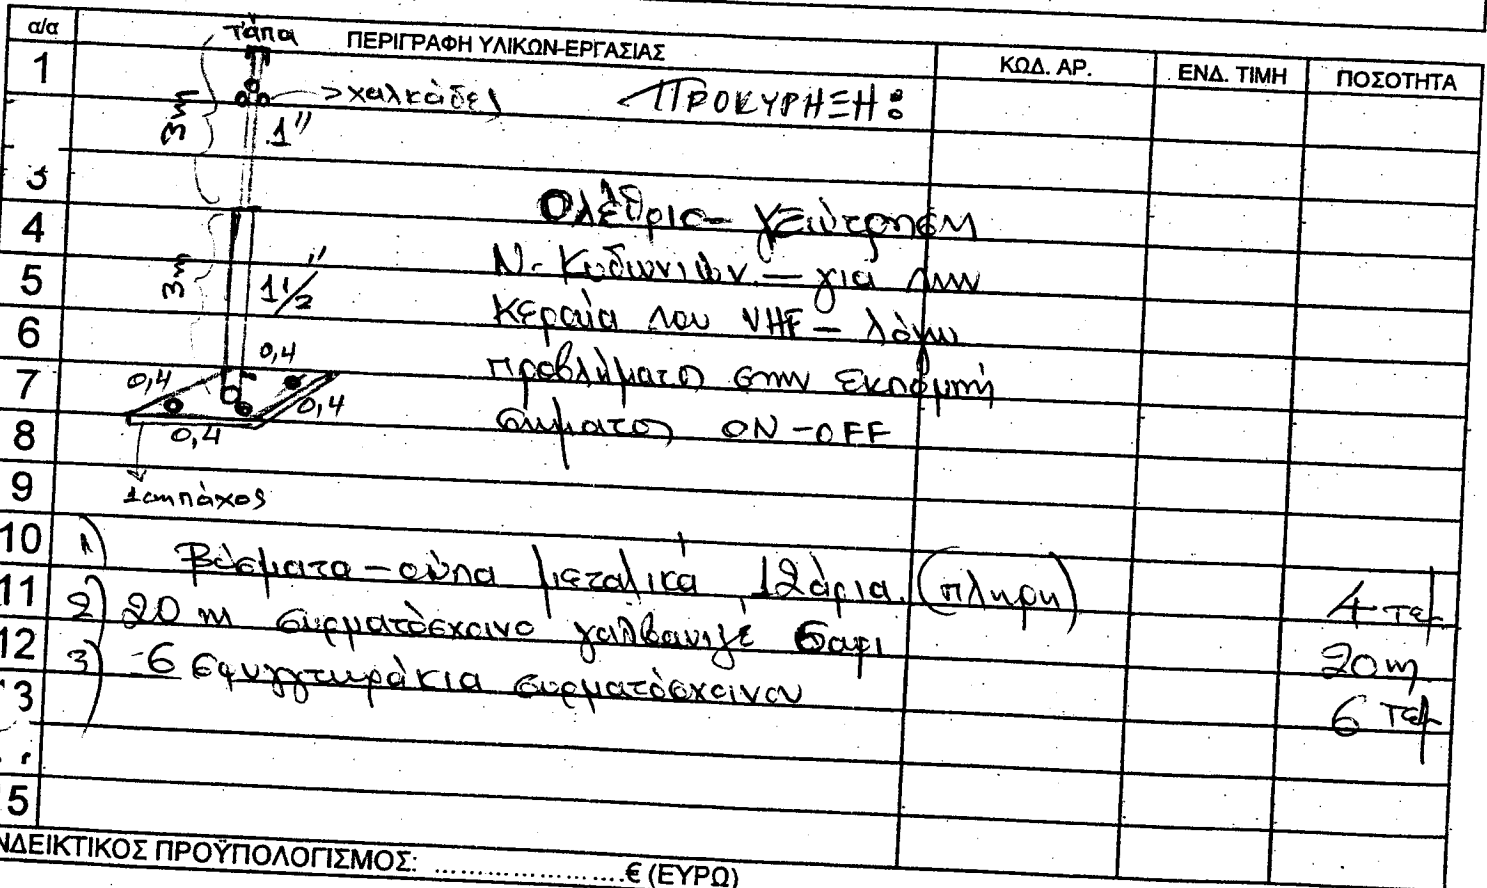 α/α ΠΕΡΙΓΡΑΦΗ ΥΛΙΚΩΝ-ΕΡΓΑΣΙΑΣ ΚΩΔ. ΑΡ. ΕΝΔ. ΤΙΜΗ ΠΟΣΟΤΗΤΑ
τάπα
1
χαλκάδες ΠΡΟΚΥΡΗΞΗ:
3m 1''
3
4 Ολέθριο - γεώτρηση
5 Ν. Κυδωνιών - για την
3m 1 1/2''
6 κεραία του VHF - λόγω
7 προβλήματος στην εκπομπή
0,4 0,4
0,4
0,4
8 σήματος ON-OFF
9 1cm πάχος
10 1) Βύσματα - ούπα μεταλικά 12άρια. (πλήρη) 4 τεμ
11 2) 20 m συρματόσχοινο γαλβανιζέ 6αρι 20 m
12 3) -6 σφυγγτυράκια συρματόσχοινου 6 τεμ
3
5
ΝΔΕΙΚΤΙΚΟΣ ΠΡΟΫΠΟΛΟΓΙΣΜΟΣ: .....................€ (ΕΥΡΩ)